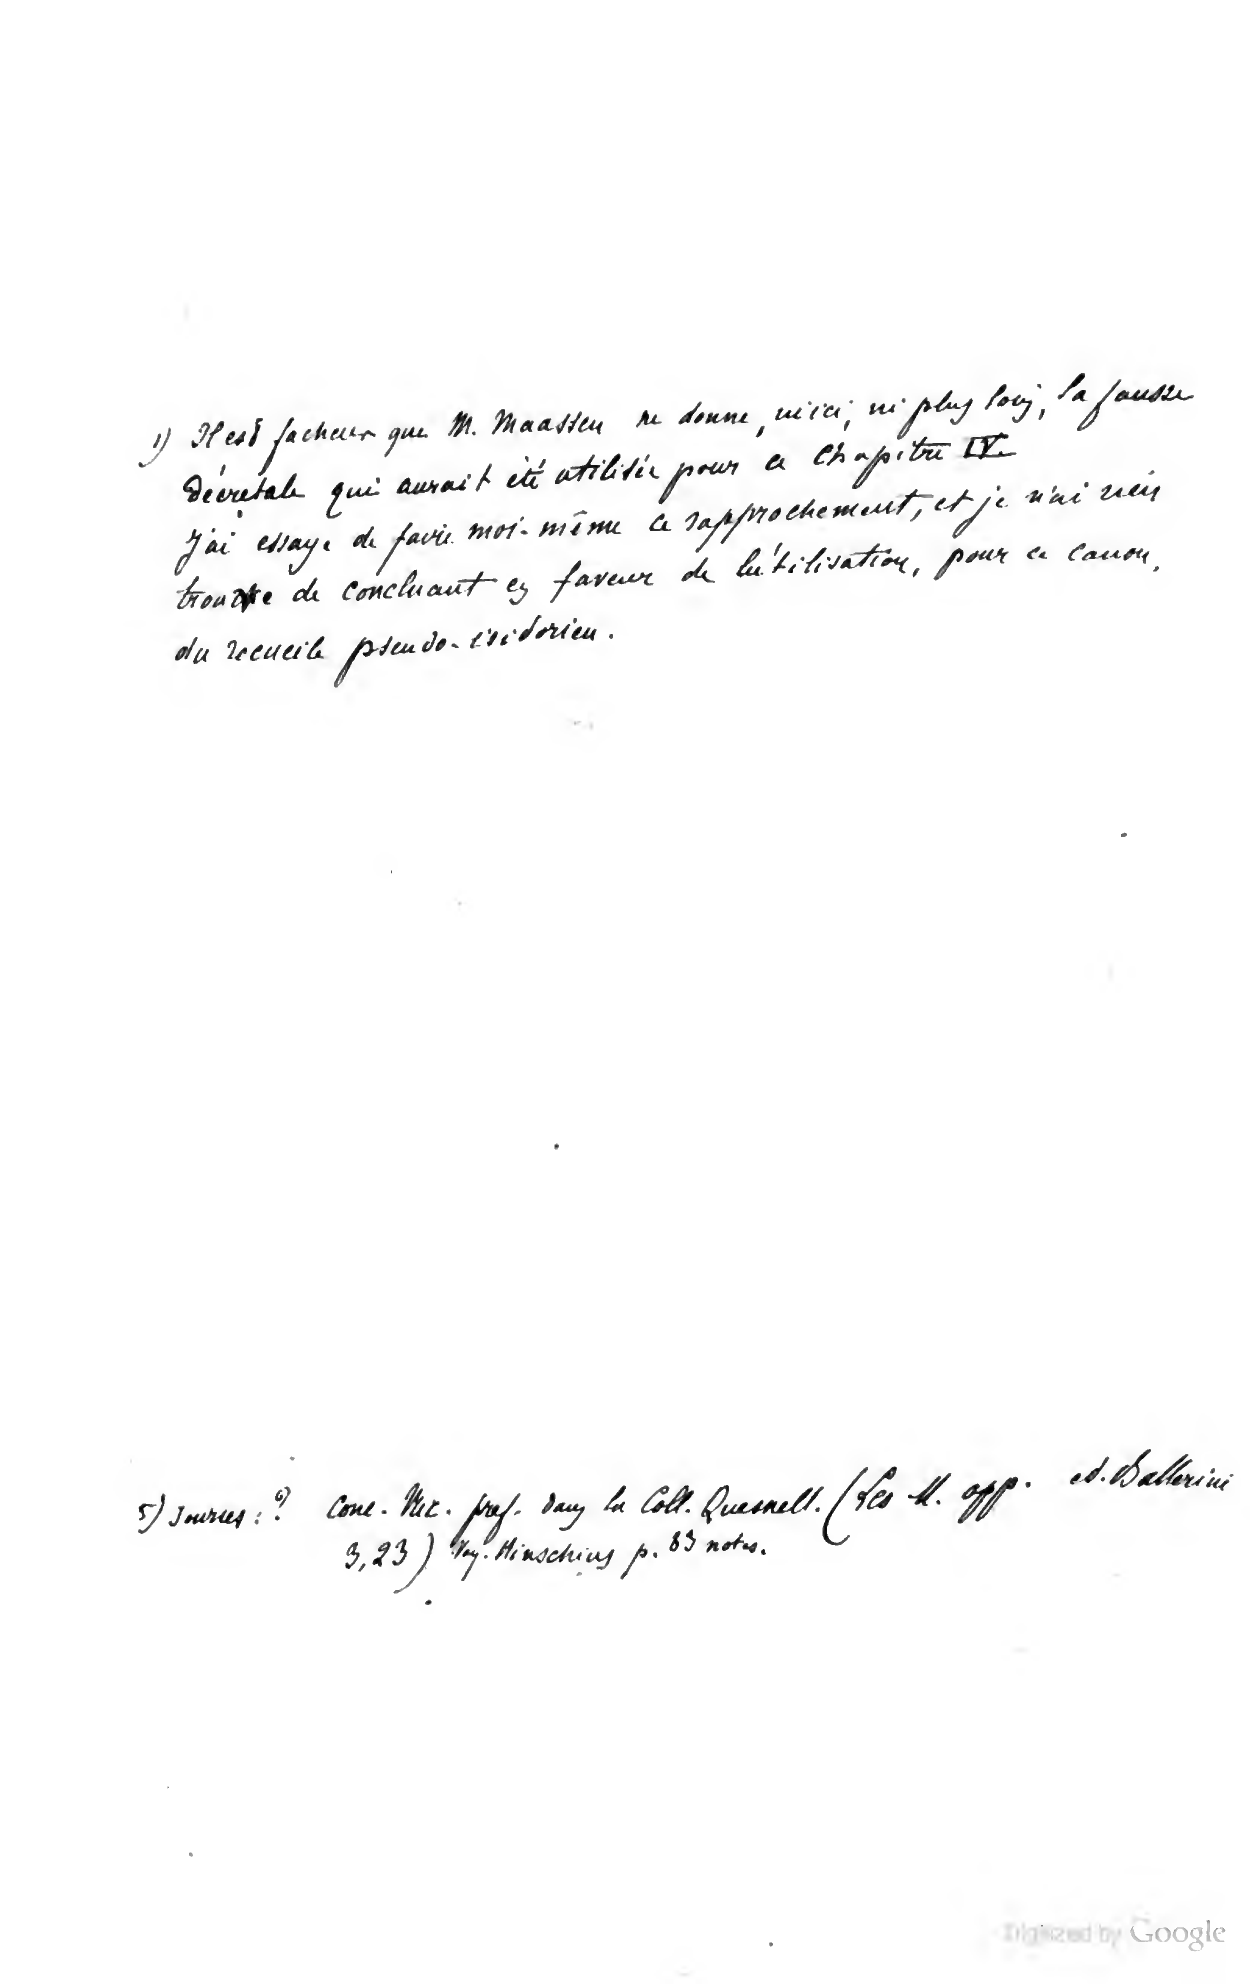 1) Il est facheux que M. Maassen ne donne, ni ici, ni plus loin, la fausse
Décretale qui aurait été utilisée pour ce Chapitre IV.
J'ai essayé de faire moi-même ce rapprochement, et je n'ai rien
trouvé de concluant en faveur de l'utilisation, pour ce canon,
du recueil pseudo-isidorien.
5) Sources : ? Conc. Nic. praef. dans la Coll. Quesnell. (Leo M. opp. ed. Ballerini
3,23) Voy. Hinschius p. 83 notes.
Digitized by Google